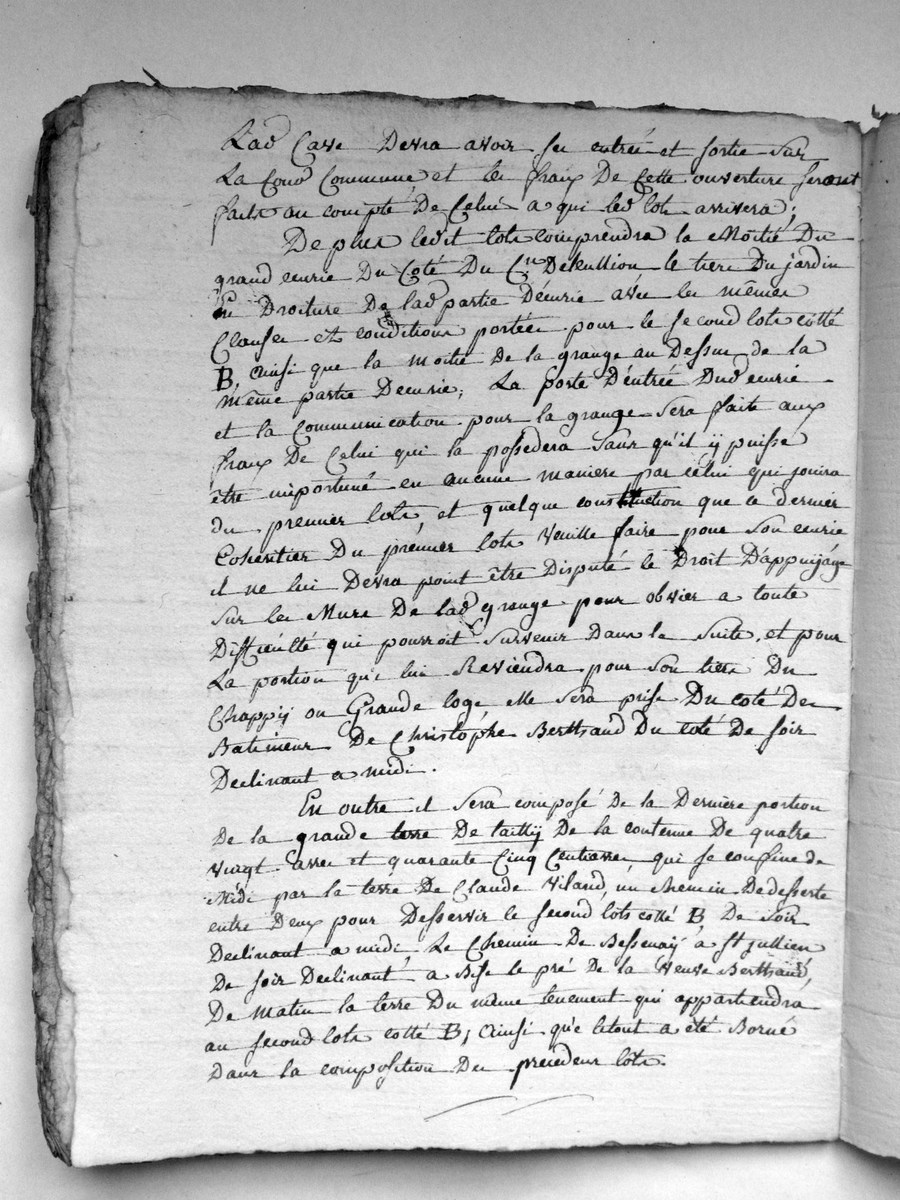 Lad Cave Devra avoir ses entrée et sortie sur
La Cour Commune et les fraix De Cette ouverture seront
faits au compte De Celui a qui led lots arrivera;
De plus ledit lots comprendra la Moitié Du
grand ecurie Du Coté Du Cn le tiers Du jardin
En Droiture De lad partie Décurie avec les mêmes
Clauses et conditions portées pour le second lots cotté
B, Ainsi que la moitié De la grange au Dessus de la
même partie Decurie; La porte D'éntrée Dud ecurie
et la Communication pour la grange Sera faite aux
fraix De Celui qui la possedera Sans qu'il ÿ puisse
être importuné en aucune maniere par celui qui jouira
du premier lots, et quelque construction que ce dernier
Coheritier Du premier lots Veuille faire pour Son ecurie
il ne lui Devra point être Disputé le Droit D'appuÿage
Sur les Murs De lad grange pour obvier a toute
Difficulté qui pourroit Survenir Dans la Suite, et pour
La portion qui lui Reviendra pour Son tiers Du
Chappÿ ou Grande loge elle Sera prise Du coté Des
Batimens De Christophe Berthaud Du coté De soir
Declinant a midi.
En outre il Sera composé de la Derniére portion
De la grande terre De taillÿ De la contenue De quatre
Vingt arres et quarante Cinq Centiarres qui se confine de
Midi par la terre De Claude Viland, un chemin Dedesserte
entre Deux pour Desservir le second lots cotté B, De Soir
Declinant a midi, Le Chemin De Bessenaÿ à St jullien
De soir Declinant à Bise le pré De la Veuve Berthaud,
De Matin la terre Du même tenement qui appartiendra
au second lots cotté B; Ainsi que letout a été Borné
Dans la composition Des precedens lots.